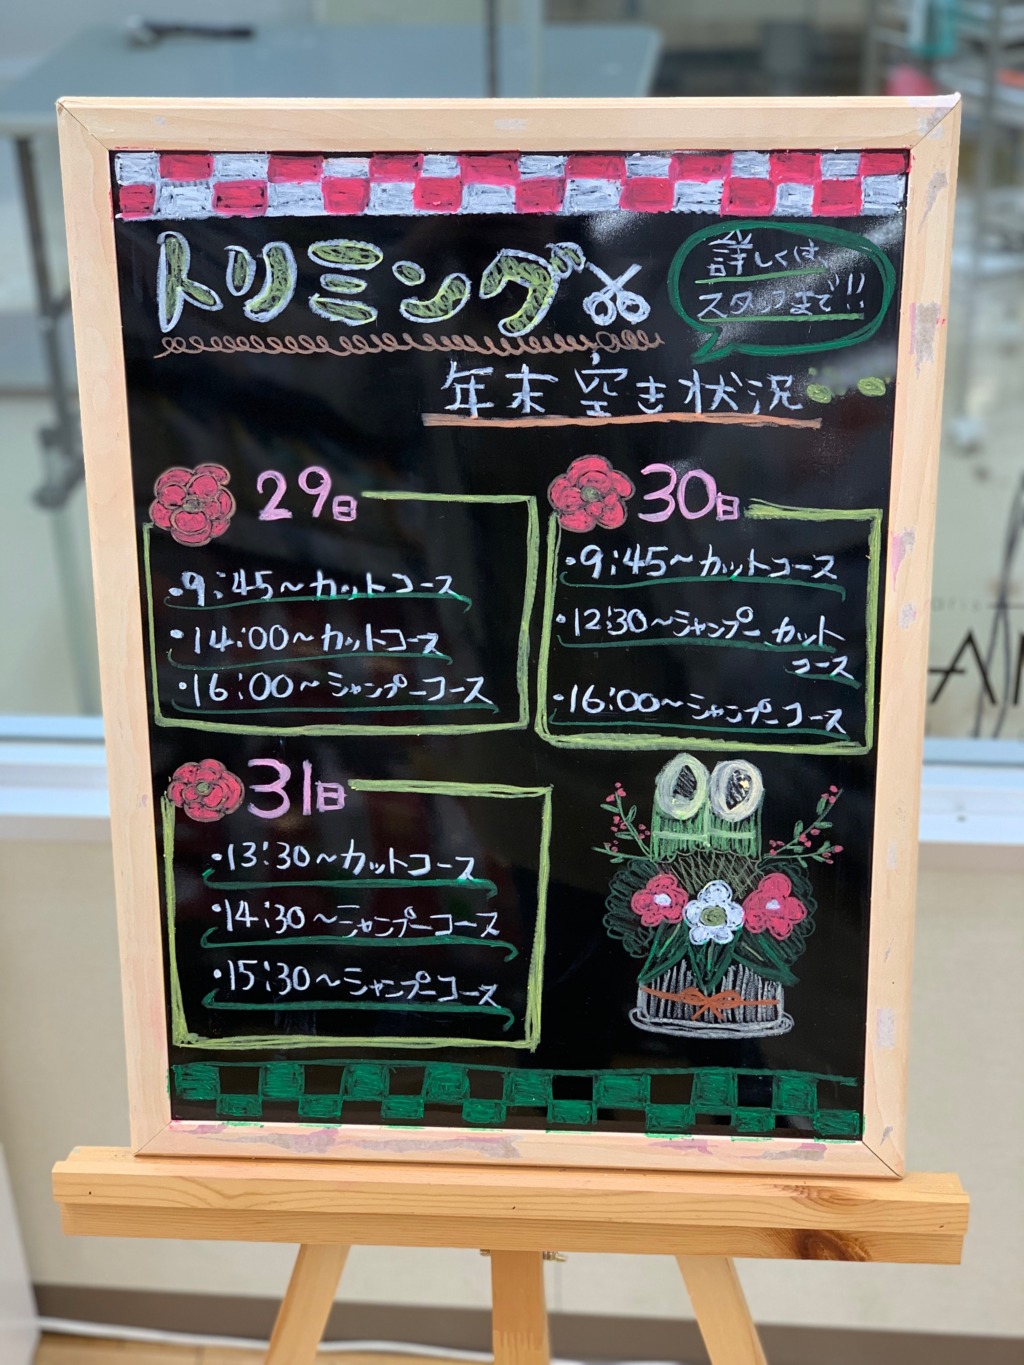 トリミング
詳しくは、
スタッフまで!!
年末空き状況
29日
・9:45～カットコース
・14:00～カットコース
・16:00～シャンプーコース
30日
・9:45～カットコース
・12:30～シャンプーカット
コース
・16:00～シャンプーコース
31日
・13:30～カットコース
・14:30～シャンプーコース
・15:30～シャンプーコース